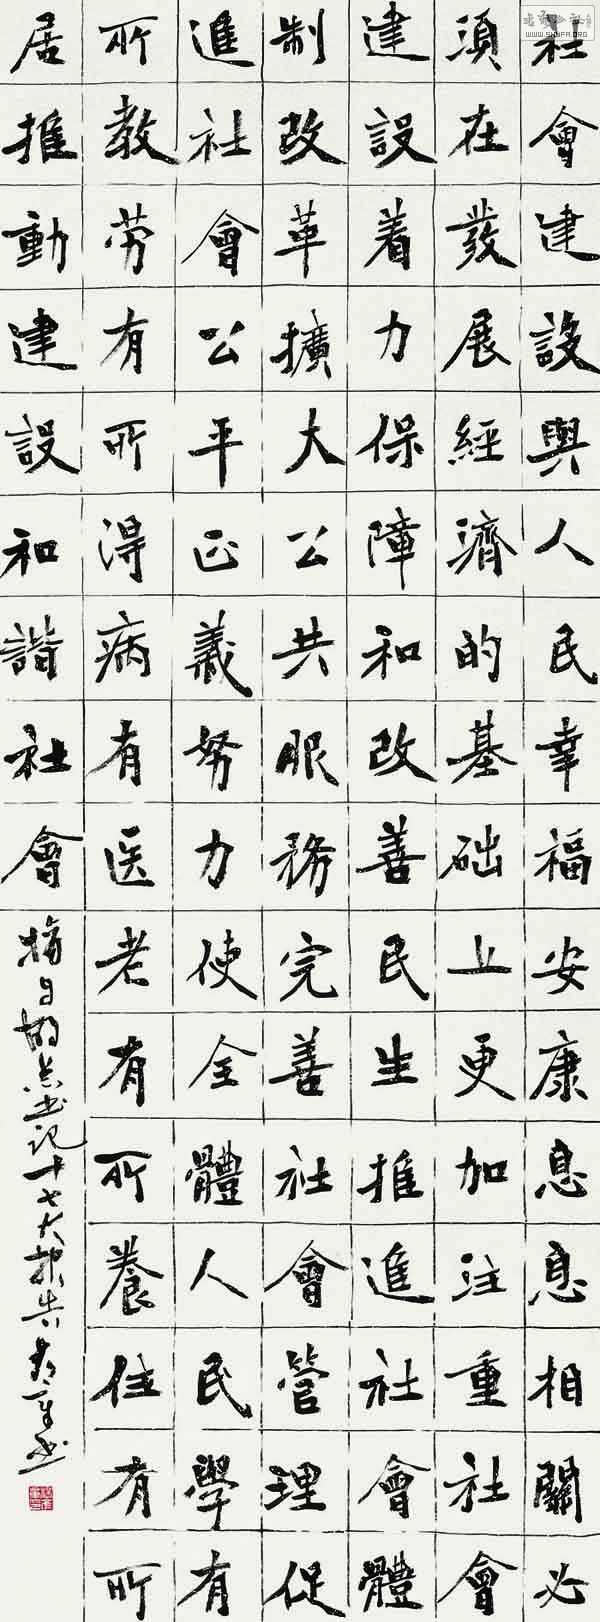 社會建設與人民幸福安康息息相關必
須在發展經濟的基础上更加注重社會
建設着力保障和改善民生推進社會體
制改革擴大公共服務完善社會管理促
進社會公平正義努力使全體人民學有
所教劳有所得病有医老有所養住有所
居推動建設和諧社會
摘自胡总书记十七大报告
WWW.SHUFA.ORG